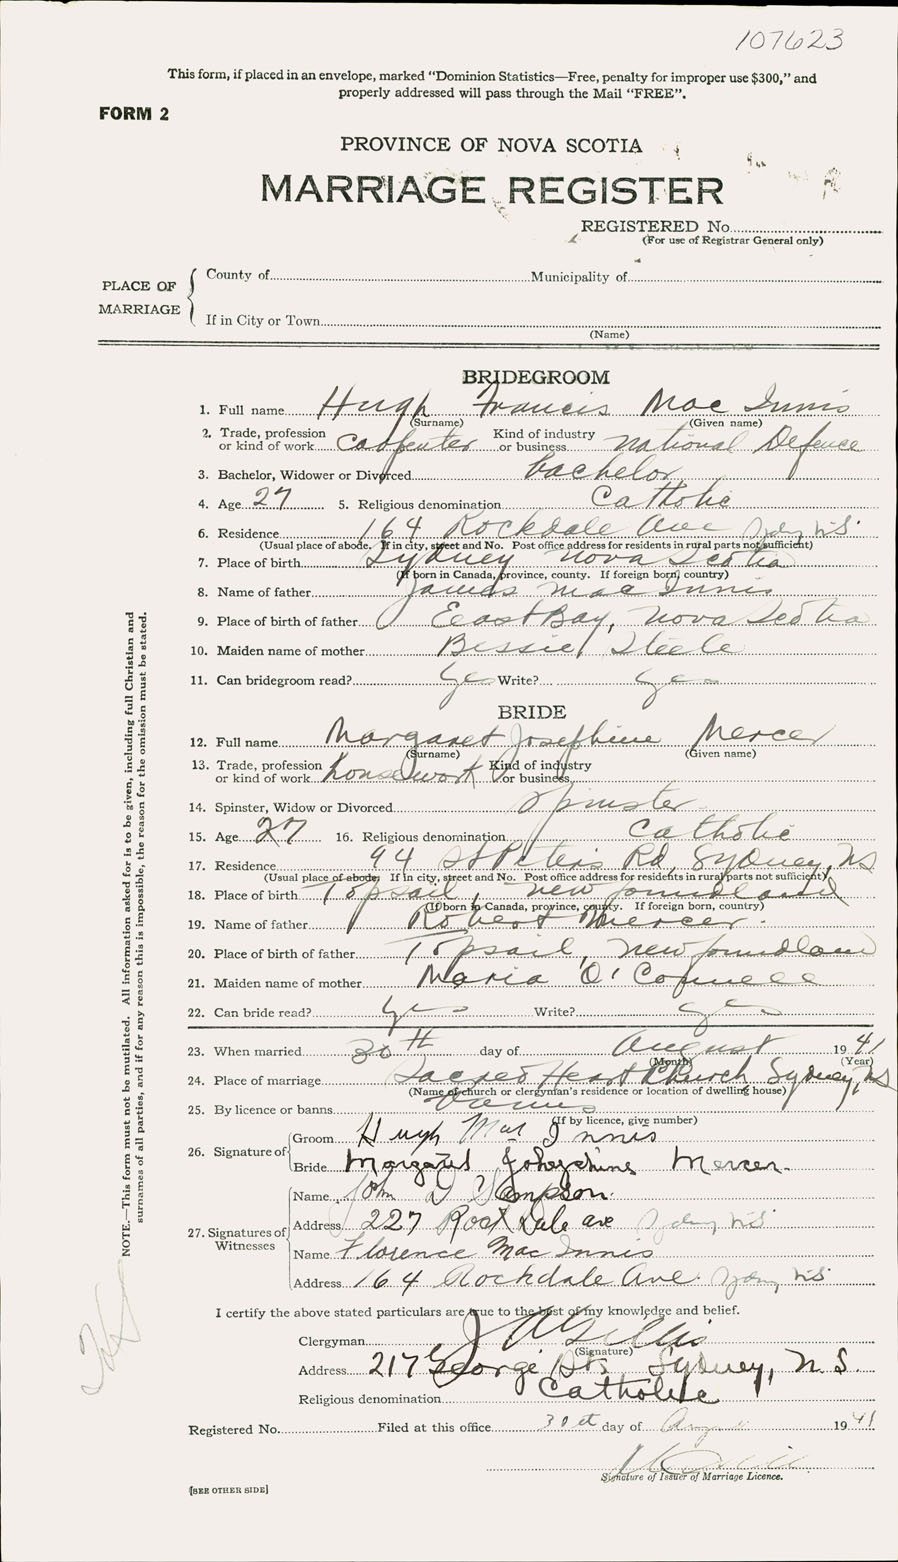 107623
This form, if placed in an envelope, marked "Dominion Statistics—Free, penalty for improper use $300," and
properly addressed will pass through the Mail "FREE".
FORM 2
PROVINCE OF NOVA SCOTIA
MARRIAGE REGISTER
REGISTERED No.
(For use of Registrar General only)
PLACE OF MARRIAGE
County of Municipality of
If in City or Town
(Name)
BRIDEGROOM
1. Full name Hugh Francis Mac Innis
(Surname) (Given name)
2. Trade, profession or kind of work carpenter Kind of industry or business national Defence
3. Bachelor, Widower or Divorced bachelor
4. Age 27 5. Religious denomination Catholic
6. Residence 164 Rockdale Ave Sydney N.S.
(Usual place of abode. If in city, street and No. Post office address for residents in rural parts not sufficient)
7. Place of birth Sydney nova Scotia
(If born in Canada, province, county. If foreign born, country)
8. Name of father James Mac Innis
9. Place of birth of father East Bay, nova Scotia
10. Maiden name of mother Bessie Steele
11. Can bridegroom read? yes Write? yes
BRIDE
12. Full name Margaret Josephine Mercer
(Surname) (Given name)
13. Trade, profession or kind of work housework Kind of industry or business
14. Spinster, Widow or Divorced Spinster
15. Age 27 16. Religious denomination Catholic
17. Residence 94 St Peter's Rd, Sydney, NS
(Usual place of abode. If in city, street and No. Post office address for residents in rural parts not sufficient)
18. Place of birth Topsail, newfoundland
(If born in Canada, province, county. If foreign born, country)
19. Name of father Robert Mercer.
20. Place of birth of father Topsail, newfoundland
21. Maiden name of mother Maria O'Connell
22. Can bride read? yes Write? yes
23. When married 30th day of August 1941
(Month) (Year)
24. Place of marriage Sacred Heart Church, Sydney, NS
(Name of church or clergyman's residence or location of dwelling house)
25. By licence or banns banns
(If by licence, give number)
26. Signature of
Groom Hugh Mac Innis
Bride Margaret Josephine Mercer.
27. Signatures of Witnesses
Name John D Sampson.
Address 227 Rock Dale ave Sydney N.S.
Name Florence Mac Innis
Address 164 Rockdale Ave. Sydney N.S.
I certify the above stated particulars are true to the best of my knowledge and belief.
Clergyman J A Gillis
(Signature)
Address 217 George St. Sydney, N.S.
Religious denomination Catholic
Registered No. Filed at this office 30th day of August 1941
Signature of Issuer of Marriage Licence.
[SEE OTHER SIDE]
NOTE.—This form must not be mutilated. All information asked for is to be given, including full Christian and
surnames of all parties, and if for any reason this is impossible, the reason for the omission must be stated.